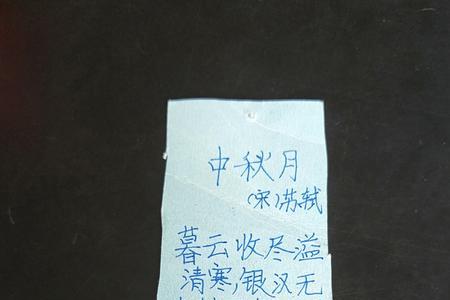 中秋月
(宋)苏轼
暮云收尽溢
清寒,银汉无